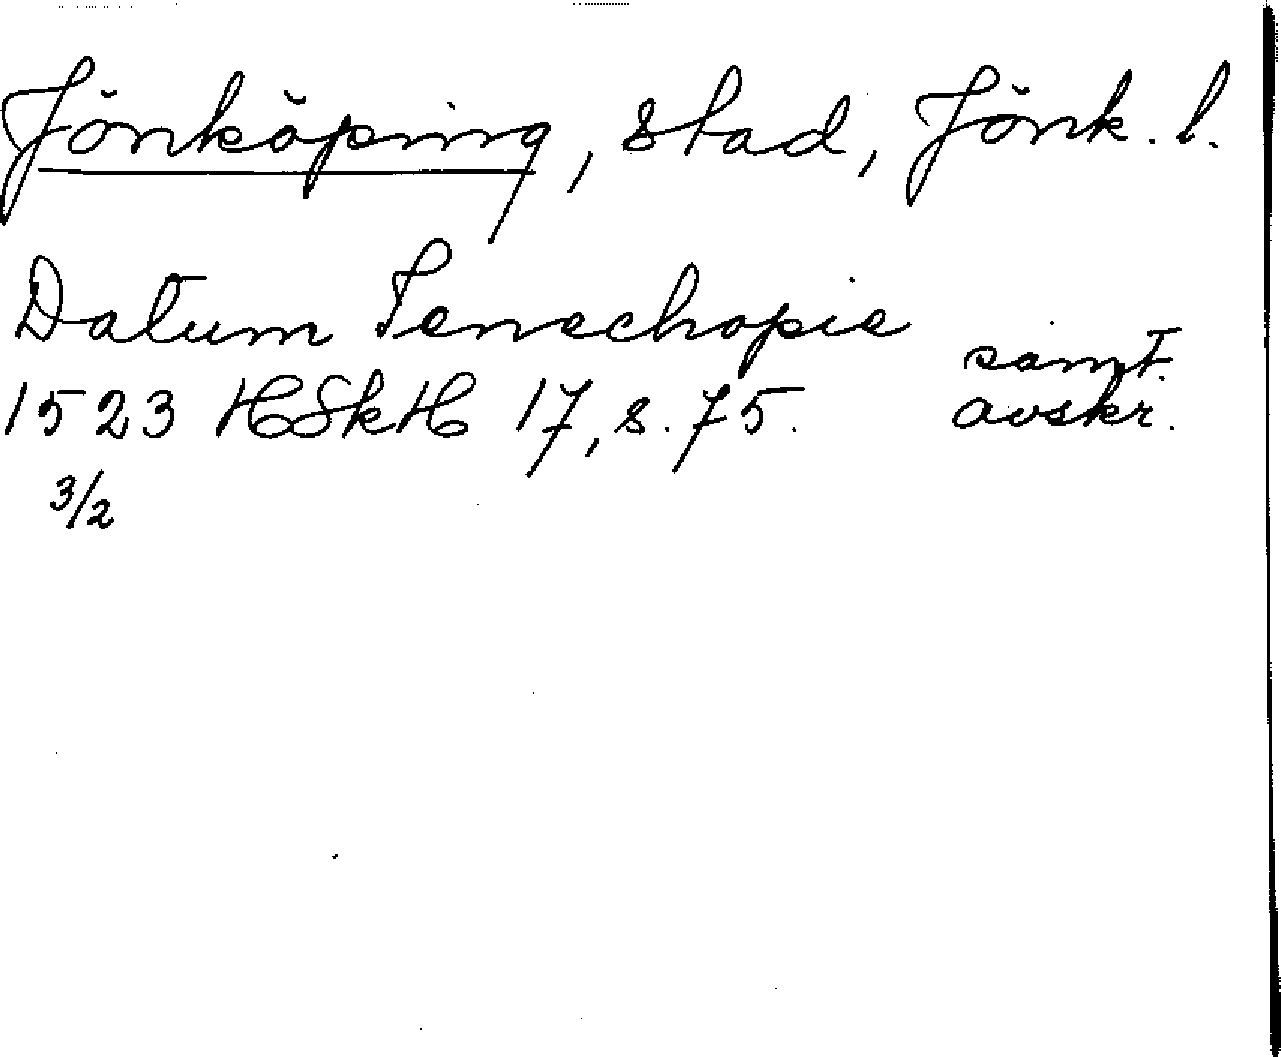 Jönköping, stad, Jönk. l.
Datum Senechopie
1523 HSkH 17, s. 75. samt. avskr.
3/2